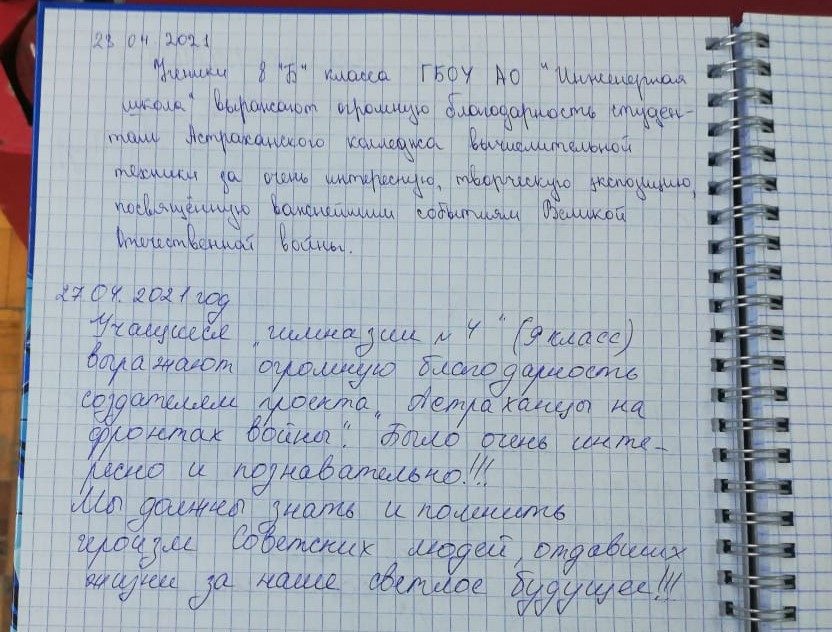 23 04 2021
Ученики 8 "Б" класса ГБОУ АО "Инженерная
школа" выражают огромную благодарность студен-
там Астраханского колледжа вычислительной
техники за очень интересную, творческую экспозицию,
посвящённую важнейшим событиям Великой
Отечественной войны.
27.04. 2021 год
Учащиеся „гимназии № 4" (9 класс)
выражают огромную благодарность
создателям проекта „Астраханцы на
фронтах войны". Было очень инте-
ресно и познавательно!!!
Мы должны знать и помнить
героизм Советских людей, отдавших
жизни за наше светлое будущее!!!